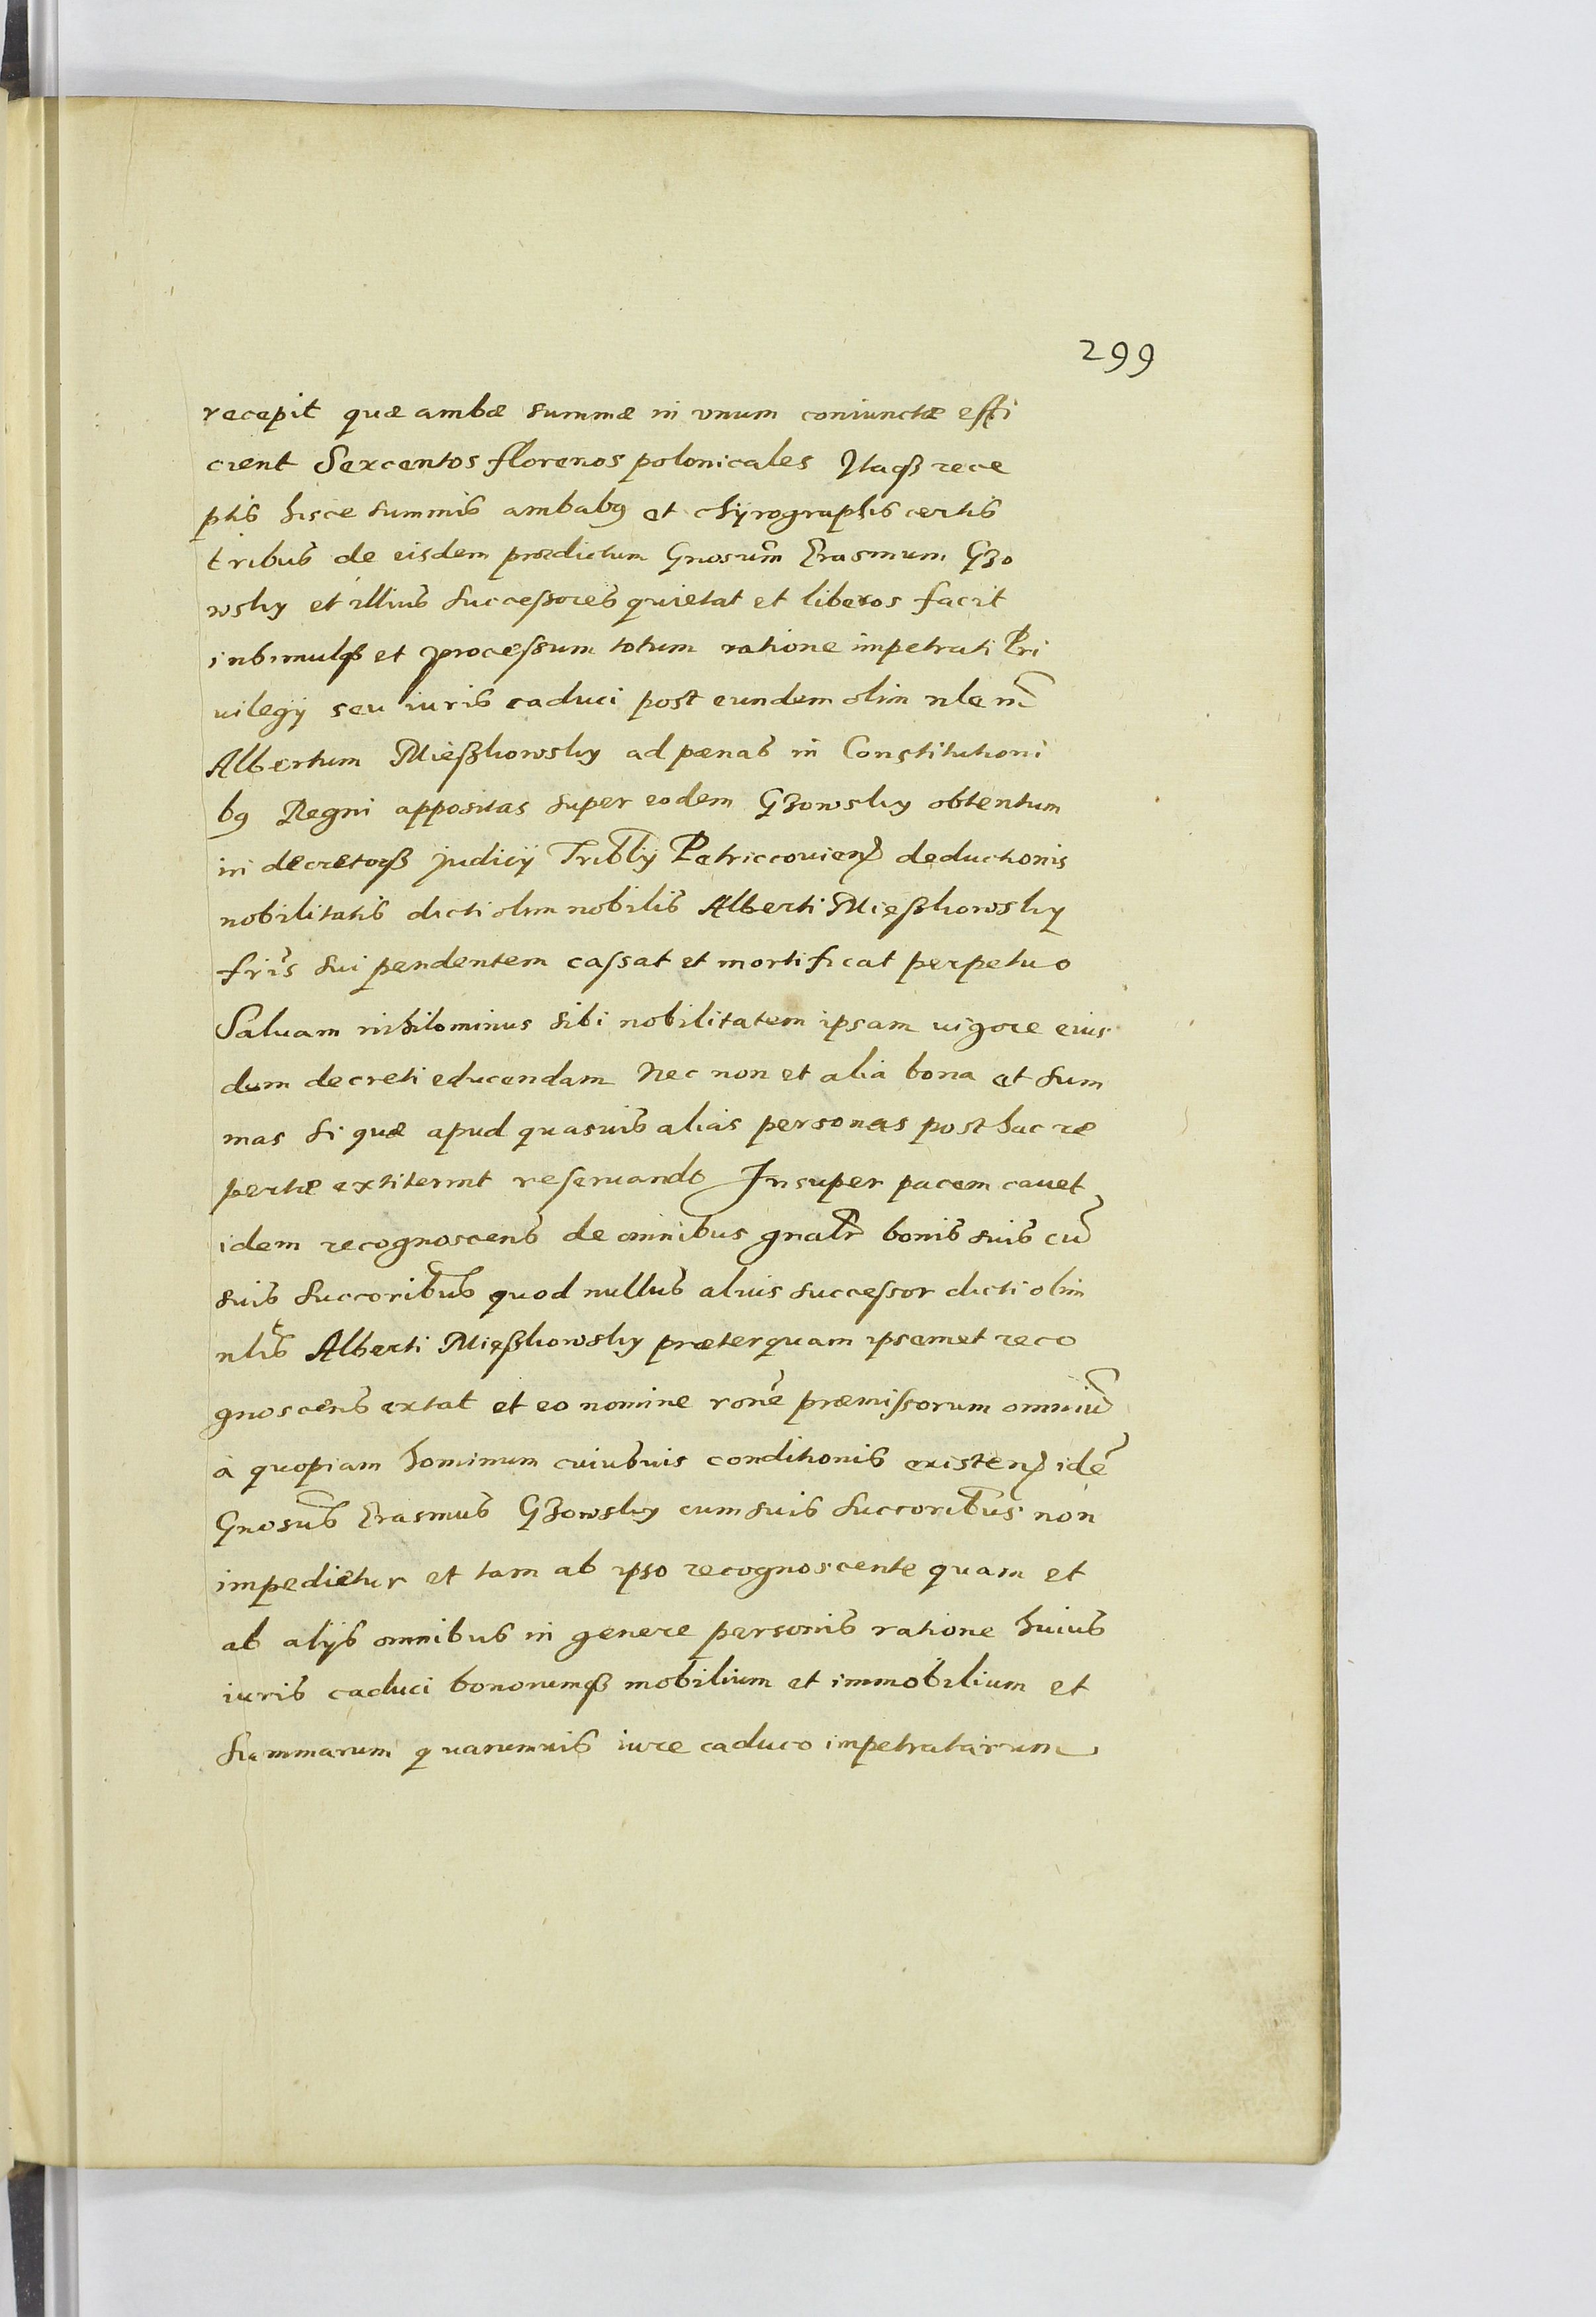 299
recepit quæ ambæ summæ in vnum coniunctæ effi
cient Sexcentos florenos polonicales Itaqꝫ rece
ptis hisce summis ambabꝰ et chÿrographis certis
tribus de eisdem prædictum Gnosum̃ Erasmum Gzo
wsky et illius successores quietat et liberos facit
insimulqꝫ et processum totum ratione impetrati Pri
uilegÿ seu iuris caduci post eundem olim nlem̃
Albertum Mieszkowsky ad pænas in Constitutioni
bꝰ Regni appositas super eodem Gzowsky obtentum
in decretoqꝫ judicÿ Triblÿ Petriccouienꝭ deductionis
nobilitatis dicti olim nobilis Alberti Mieszkowsky
frĩs sui pendentem cassat et mortificat perpetuo
Saluam nihilominus sibi nobilitatem ipsam uigore eius
dem decreti educendam nec non et alia bona et sum
mas si quæ apud quasuis alias personas posthac re
pertæ extiterint reseruando Insuper pacem cauet
idem recognoscens de omnibus gnalr̃ bonis suis cũ
suis succoribus̃ quod nullus alius successor dicti olim
nlis̃ Alberti Mieszkowsky præterquam ipsemet reco
gnoscens extat et eo nomine rone̋ præmissorum omniũ
à quopiam hominum cuiusuis conditionis existenꝭ idẽ
Gnosus̃ Erasmus Gzowsky cum suis succoribus̃ non
impedietur et tam ab ipso recognoscente quam et
ab alÿs omnibus in genere personis ratione huius
iuris caduci bonorumqꝫ mobilium et immobilium et
summarum quarumuis iure caduco impetratarum